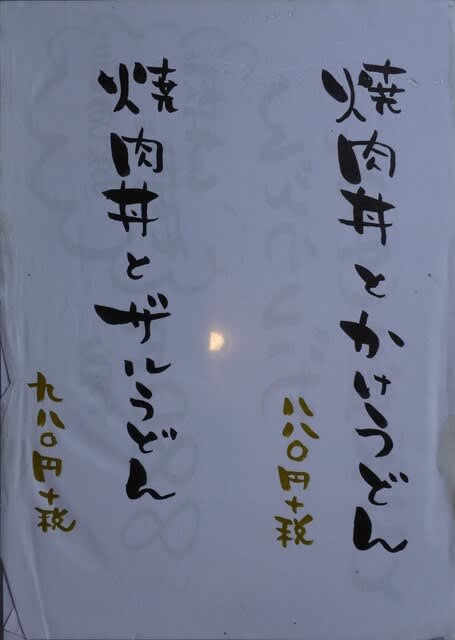 焼肉丼とかけうどん
八八〇円+税
焼肉丼とザルうどん
九八〇円+税